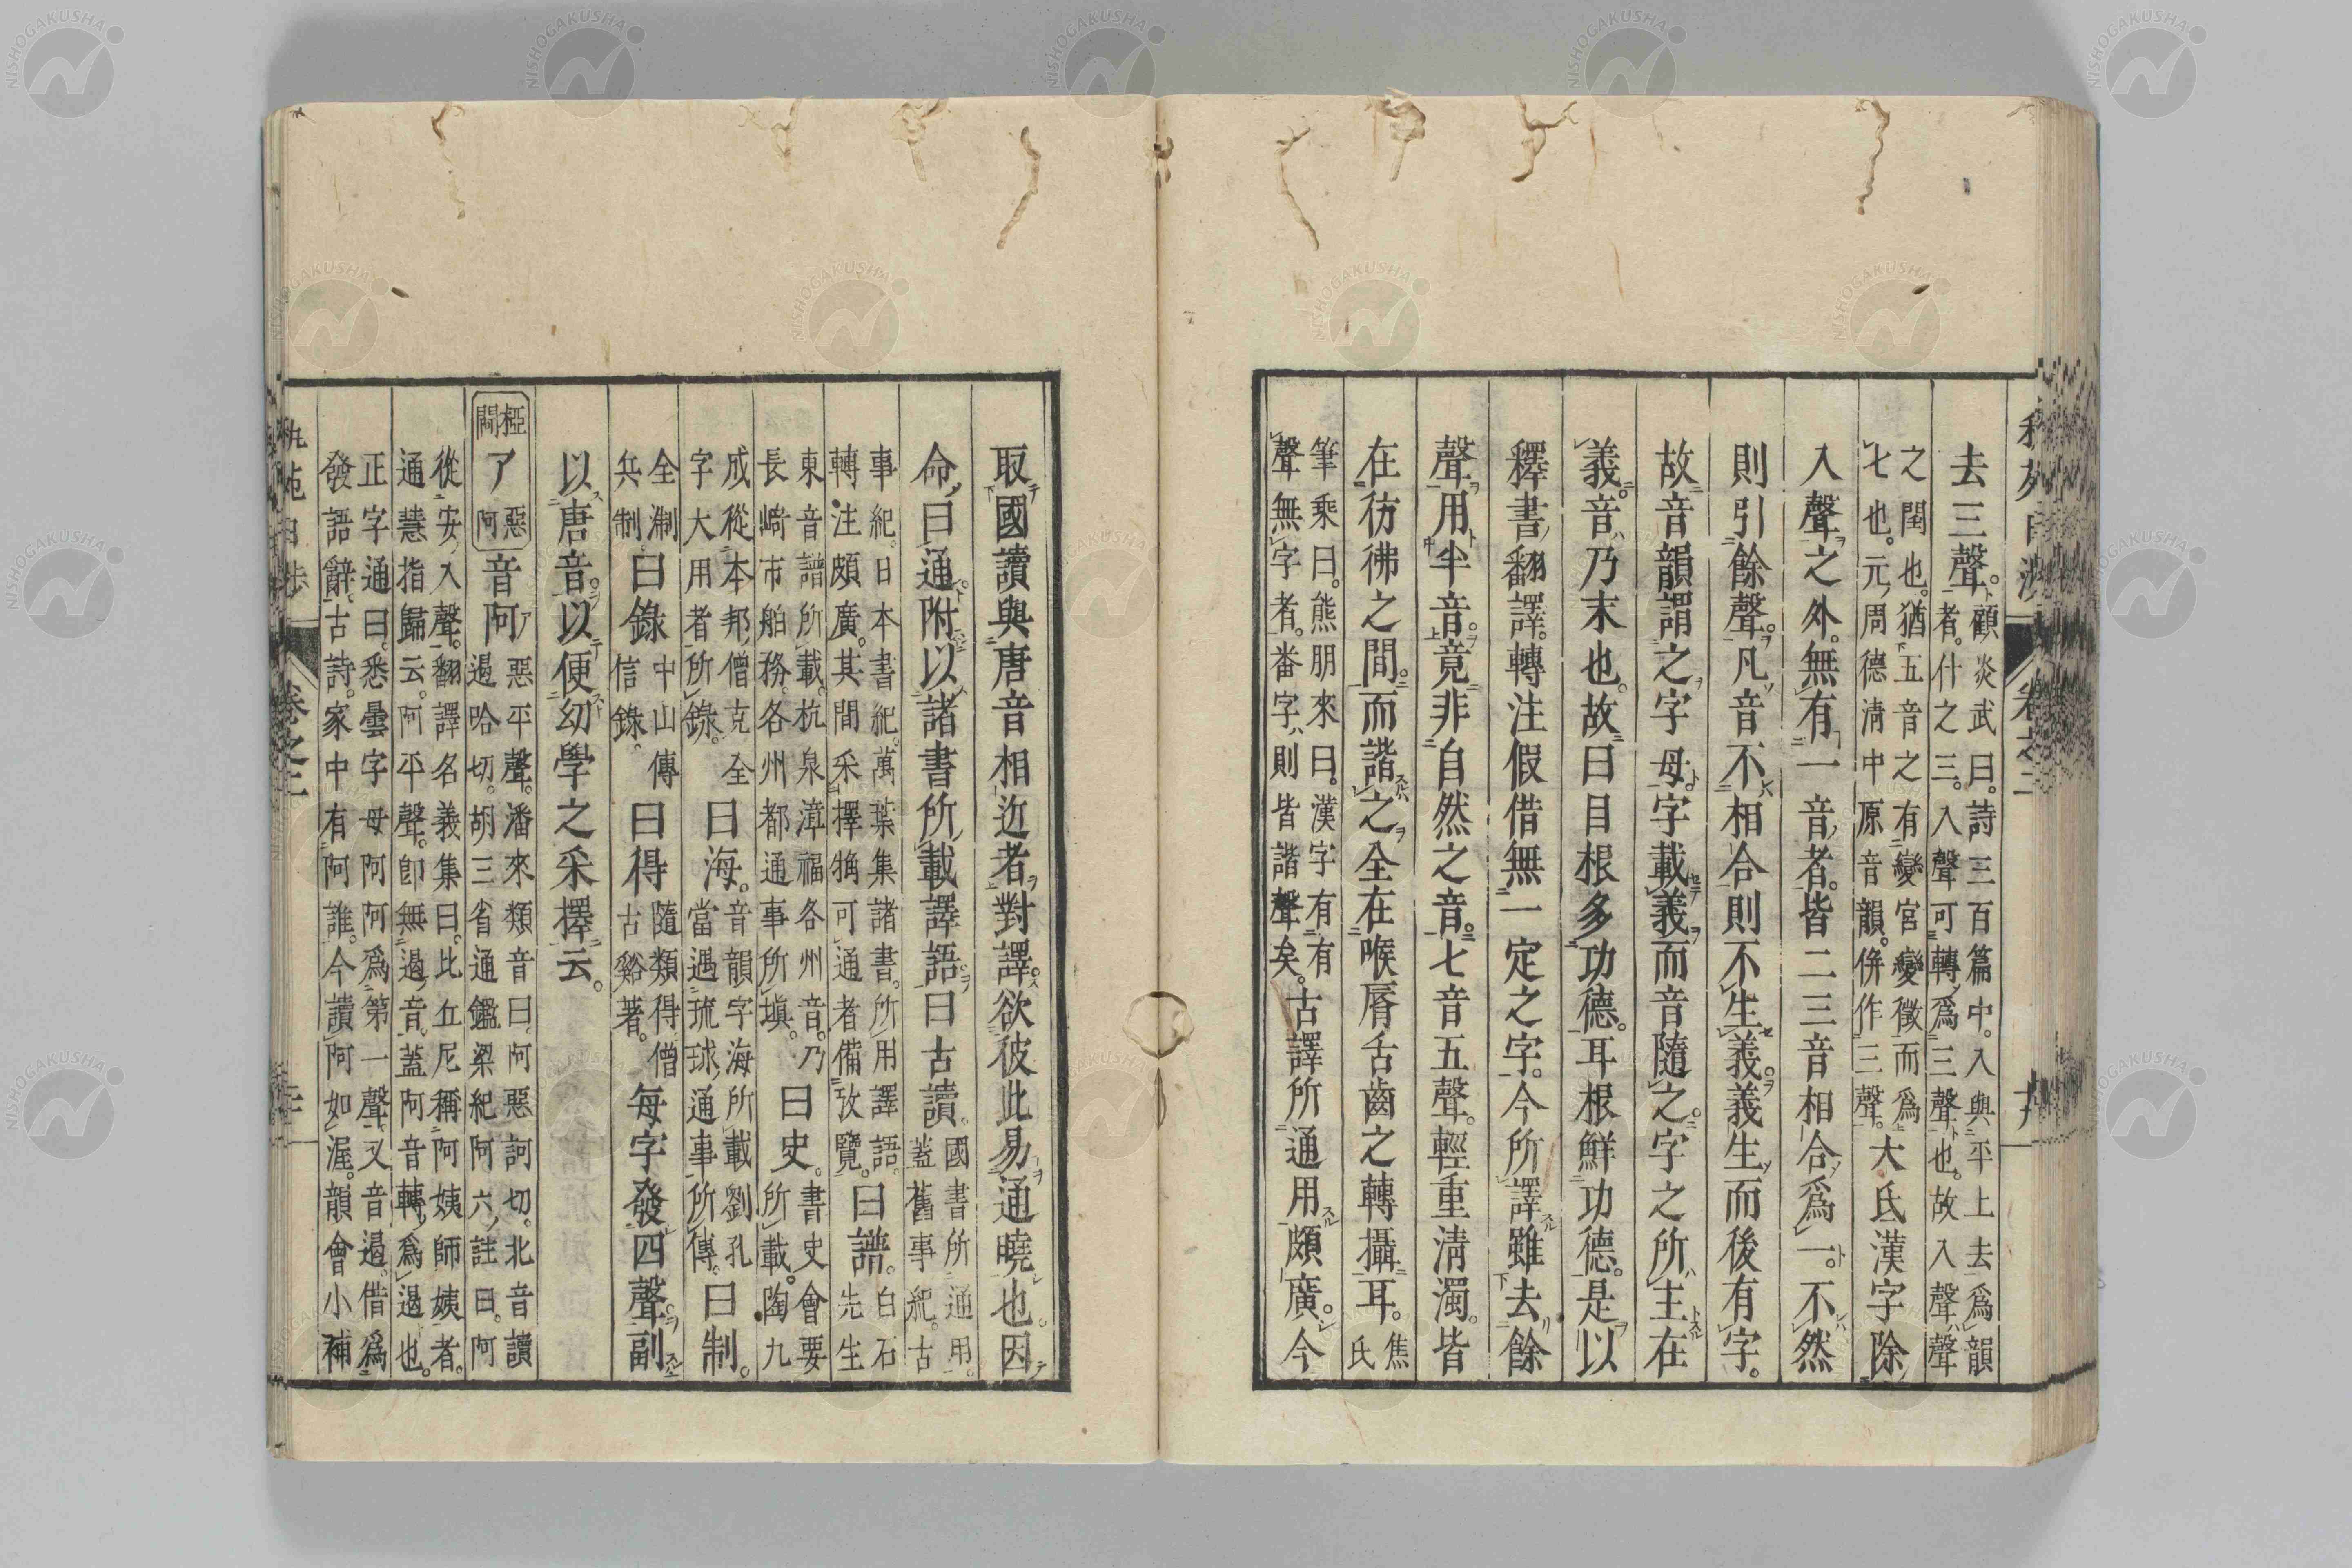 去三聲。顧炎武曰。詩三百篇中。入與平上去爲韻
者。什之三。入聲可轉爲三聲也。故入聲聲
之閏也。猶五音之有變宮變徵而爲
七也。元周德淸中原音韻。併作三聲。大氐漢字除
入聲之外。無有一音者。皆二三音相合爲一。不然
則引餘聲。凡音不相合則不生義。義生而後有字。
故音韻謂之字母。字載義而音隨之。字之所主在
義。音乃末也。故曰目根多功德。耳根鮮功德。是以
釋書翻譯。轉注假借無一定之字。今所譯雖去餘
聲用半音。竟非自然之音。七音五聲。輕重淸濁。皆
在彷彿之間。而諧之全在喉脣舌齒之轉攝耳。焦氏
筆乘曰。熊朋來曰。漢字有有
聲無字者。畨字則皆諧聲矣。古譯所通用頗廣。今
取國讀與唐音相近者對譯。欲彼此易通曉也。因
命曰通附以諸書所載譯語。曰古讀。國書所通用。
蓋舊事紀。古
事紀。日本書紀。萬葉集諸書。所用譯語。
轉注頗廣。其間采擇稱可通者備攷覽。曰譜。白石
先生
東音譜所載。杭泉漳福各州音。乃
長崎市舶務。各州都通事所塡。曰史。書史會要
所載。陶九
成從本邦僧克全
字大用者所錄。曰海。音韻字海所載劉孔
當遇琉球通事所傳。曰制。
全淛
兵制曰錄中山傳
信錄曰得隨類得僧
古谿著。每字發四聲。副
以唐音。以便幼學之采擇云。
椏間
了惡阿音阿惡平聲。潘來類音曰。阿惡訶切。北音讀
過哈切。胡三省通鑑梁紀阿六註曰。阿
從安入聲。翻譯名義集曰。比丘尼稱阿姨師姨者。
通慧指歸云。阿平聲。卽無遏音。蓋阿音轉爲遏也。
正字通曰。悉曇字母阿阿爲第一聲。又音遏。借爲
發語辭。古詩。家中有阿誰。今讀阿如渥。韻會小補
卷之二